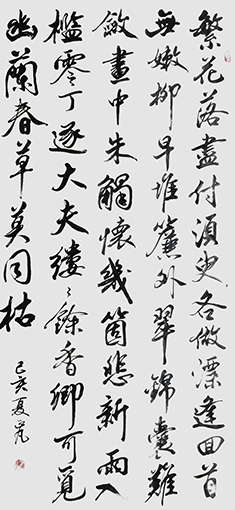 繁花落盡付須臾各做漂逢回首
無嫩柳早堆簾外翠錦囊難
斂畫中朱觸懷幾箇悲新雨入
檻零丁逐大夫縷々餘香卿可覓
幽蘭春草莫同枯
己亥夏